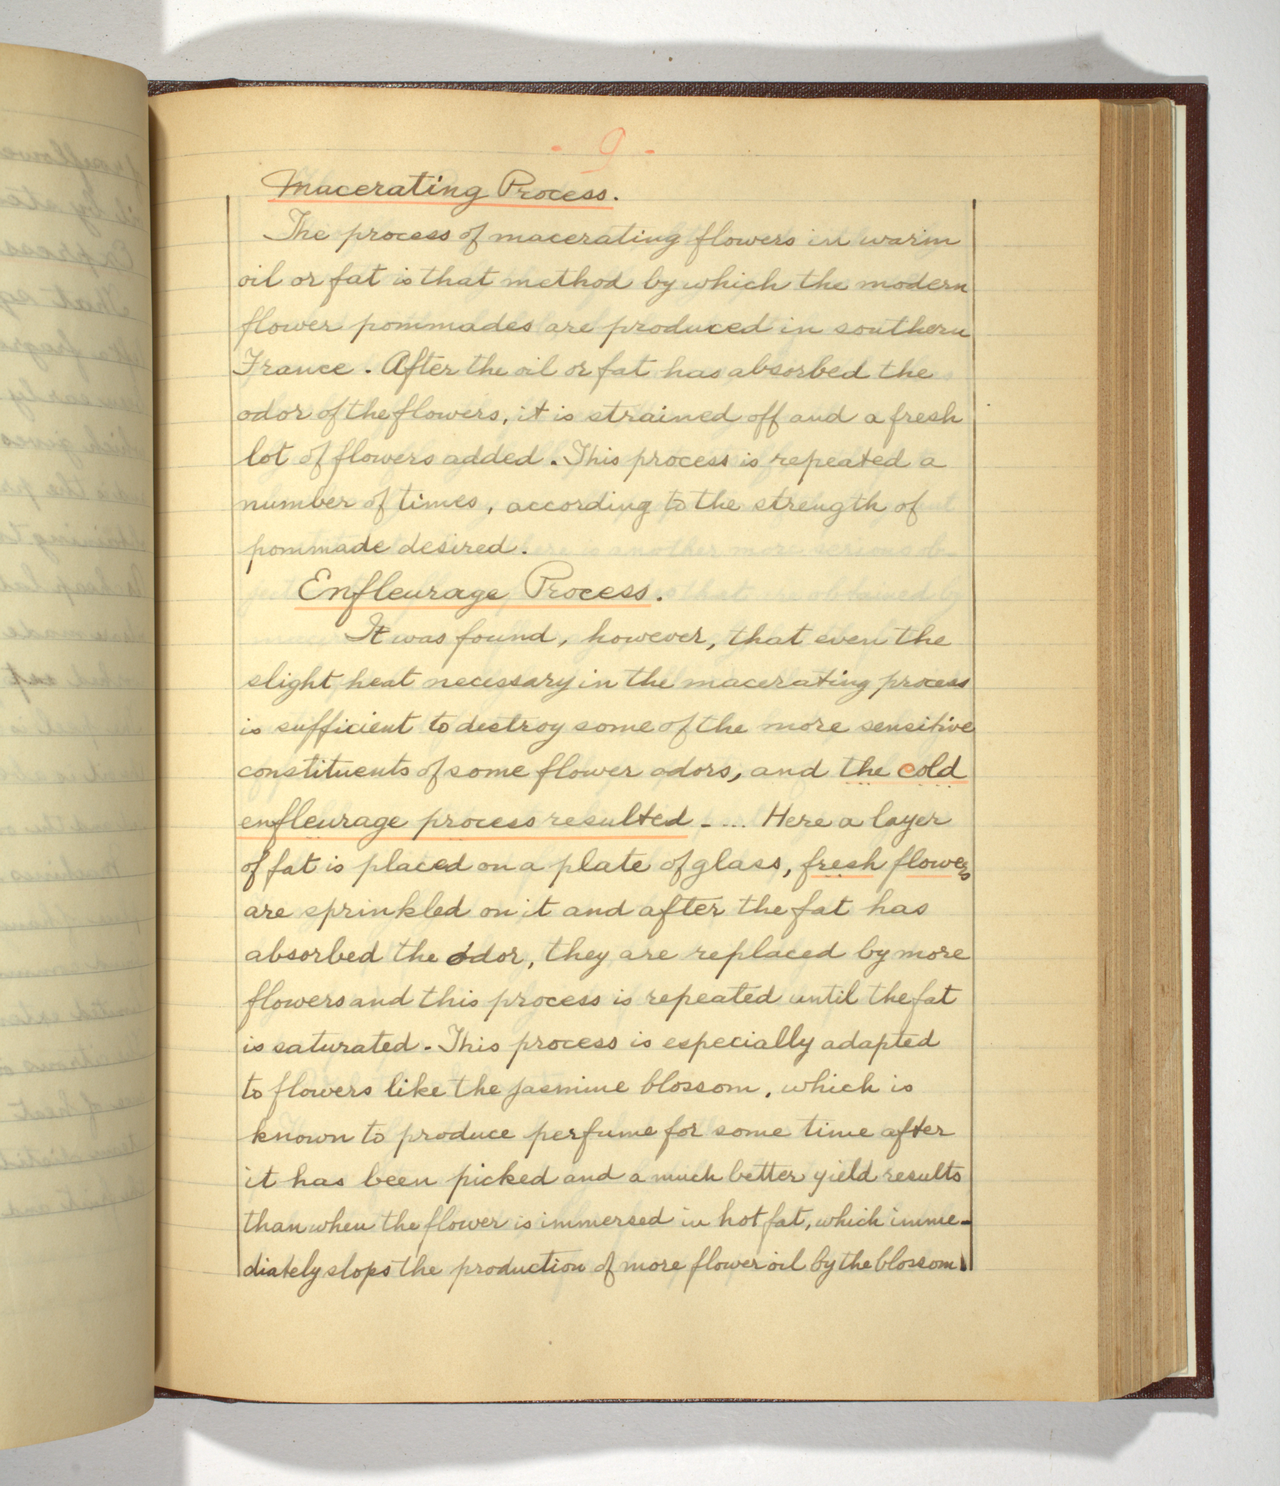 - 9 -
Macerating Process.
The process of macerating flowers in warm
oil or fat is that method by which the modern
flower pommades are produced in southern
France. After the oil or fat has absorbed the
odor of the flowers, it is strained off and a fresh
lot of flowers added. This process is repeated a
number of times, according to the strength of
pommade desired.
Enfleurage Process.
It was found, however, that even the
slight heat necessary in the macerating process
is sufficient to destroy some of the more sensitive
constituents of some flower odors, and the cold
enfleurage process resulted - ... Here a layer
of fat is placed on a plate of glass, fresh flowers
are sprinkled on it and after the fat has
absorbed the odor, they are replaced by more
flowers and this process is repeated until the fat
is saturated. This process is especially adapted
to flowers like the jasmine blossom, which is
known to produce perfume for some time after
it has been picked and a much better yield results
than when the flower is immersed in hot fat, which imme-
diately stops the production of more flower oil by the blossom